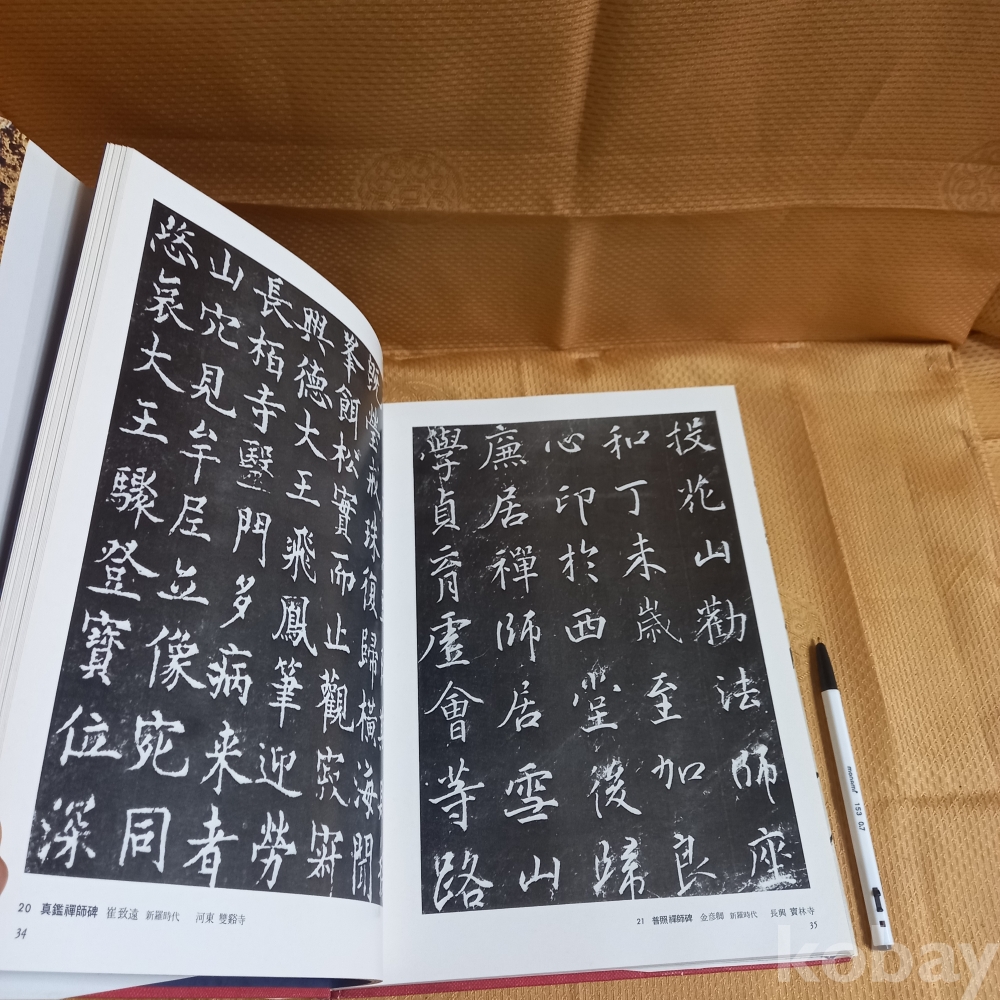 瑩戒珠復歸橫海
峯餌松實而止觀寂寂
興德大王飛鳳筆迎勞
長栢寺醫門多病来者
山穴見牟尼立像宛同
慜哀大王驟登寶位深
20 真鑑禪師碑 崔致遠 新羅時代 河東 雙谿寺
34
投花山勸法師座
和丁未歲至加良
心印於西堂後歸
廉居禪師居雪山
學貞育虛會等路
21 普照禪師碑 金彦卿 新羅時代 長興 寶林寺
35
monami 153 0.7
kobay